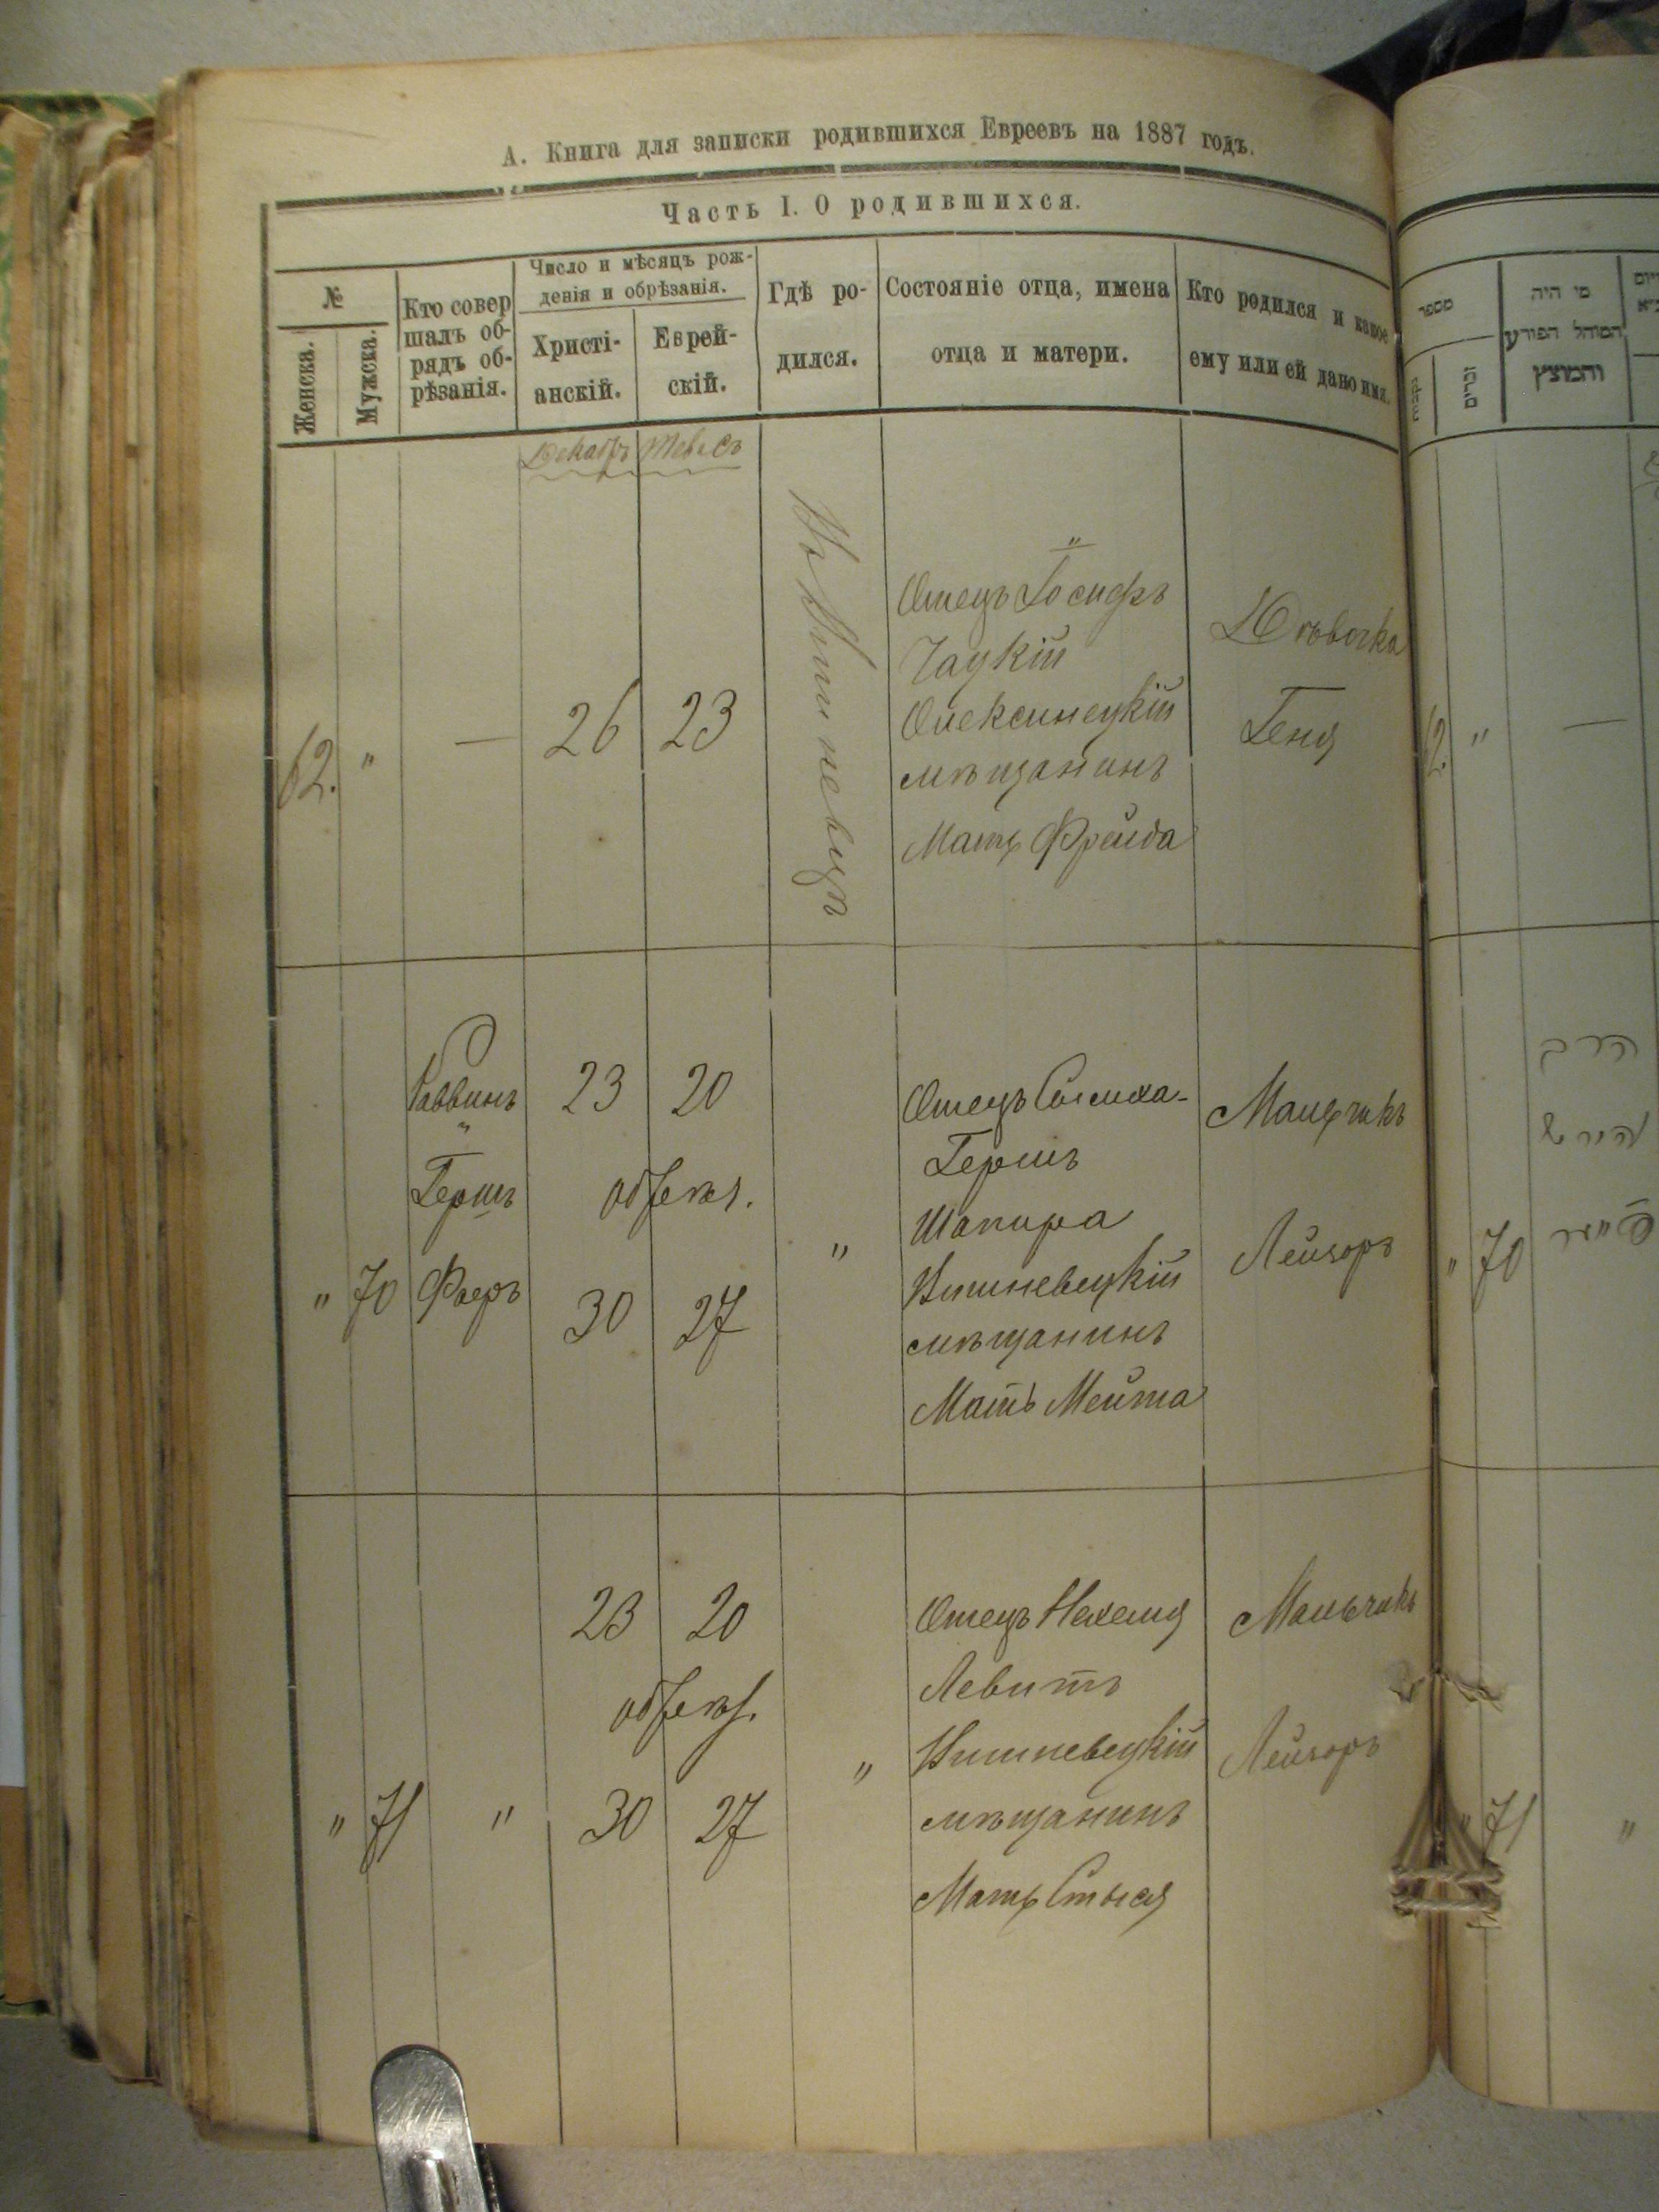 А. Книга для записки родившихся Евреевъ на 1887 годъ.
Часть I. О родившихся.
№
Женска.
Мужска.
Кто совер
шалъ об-
рядъ об-
рѣзанія.
Число и мѣсяцъ рож-
денія и обрѣзанія.
Христі-
анскій.
Еврей-
скій.
Гдѣ ро-
дился.
Состояніе отца, имена
отца и матери.
Кто родился и какое
ему или ей дано имя.
Декабрь Тевесъ
62. " — 26 23
Въ Вишневцѣ
"
Отецъ Іосифъ
Чацкій
Олексинецкій
мѣщанинъ
Мать Фрейда
Дѣвочка
Геня
" 70
Раввинъ
"
Гершъ
Фаеръ
23 20
обрѣз.
30 27
"
Отецъ Симха-
Гершъ
Шапира
Вишневецкій
мѣщанинъ
Мать Мейта
Мальчикъ
Лейзоръ
" 71 "
23 20
обрѣз.
30 27
"
Отецъ Нехемя
Левитъ
Вишневецкій
мѣщанинъ
Мать Стыся
Мальчикъ
Лейзоръ
מספר
נקבות
זכרים
מי היה
המוהל הפורע
והמוצץ
62 " —
הרב
הירש
" 70 פייער
" 71 "